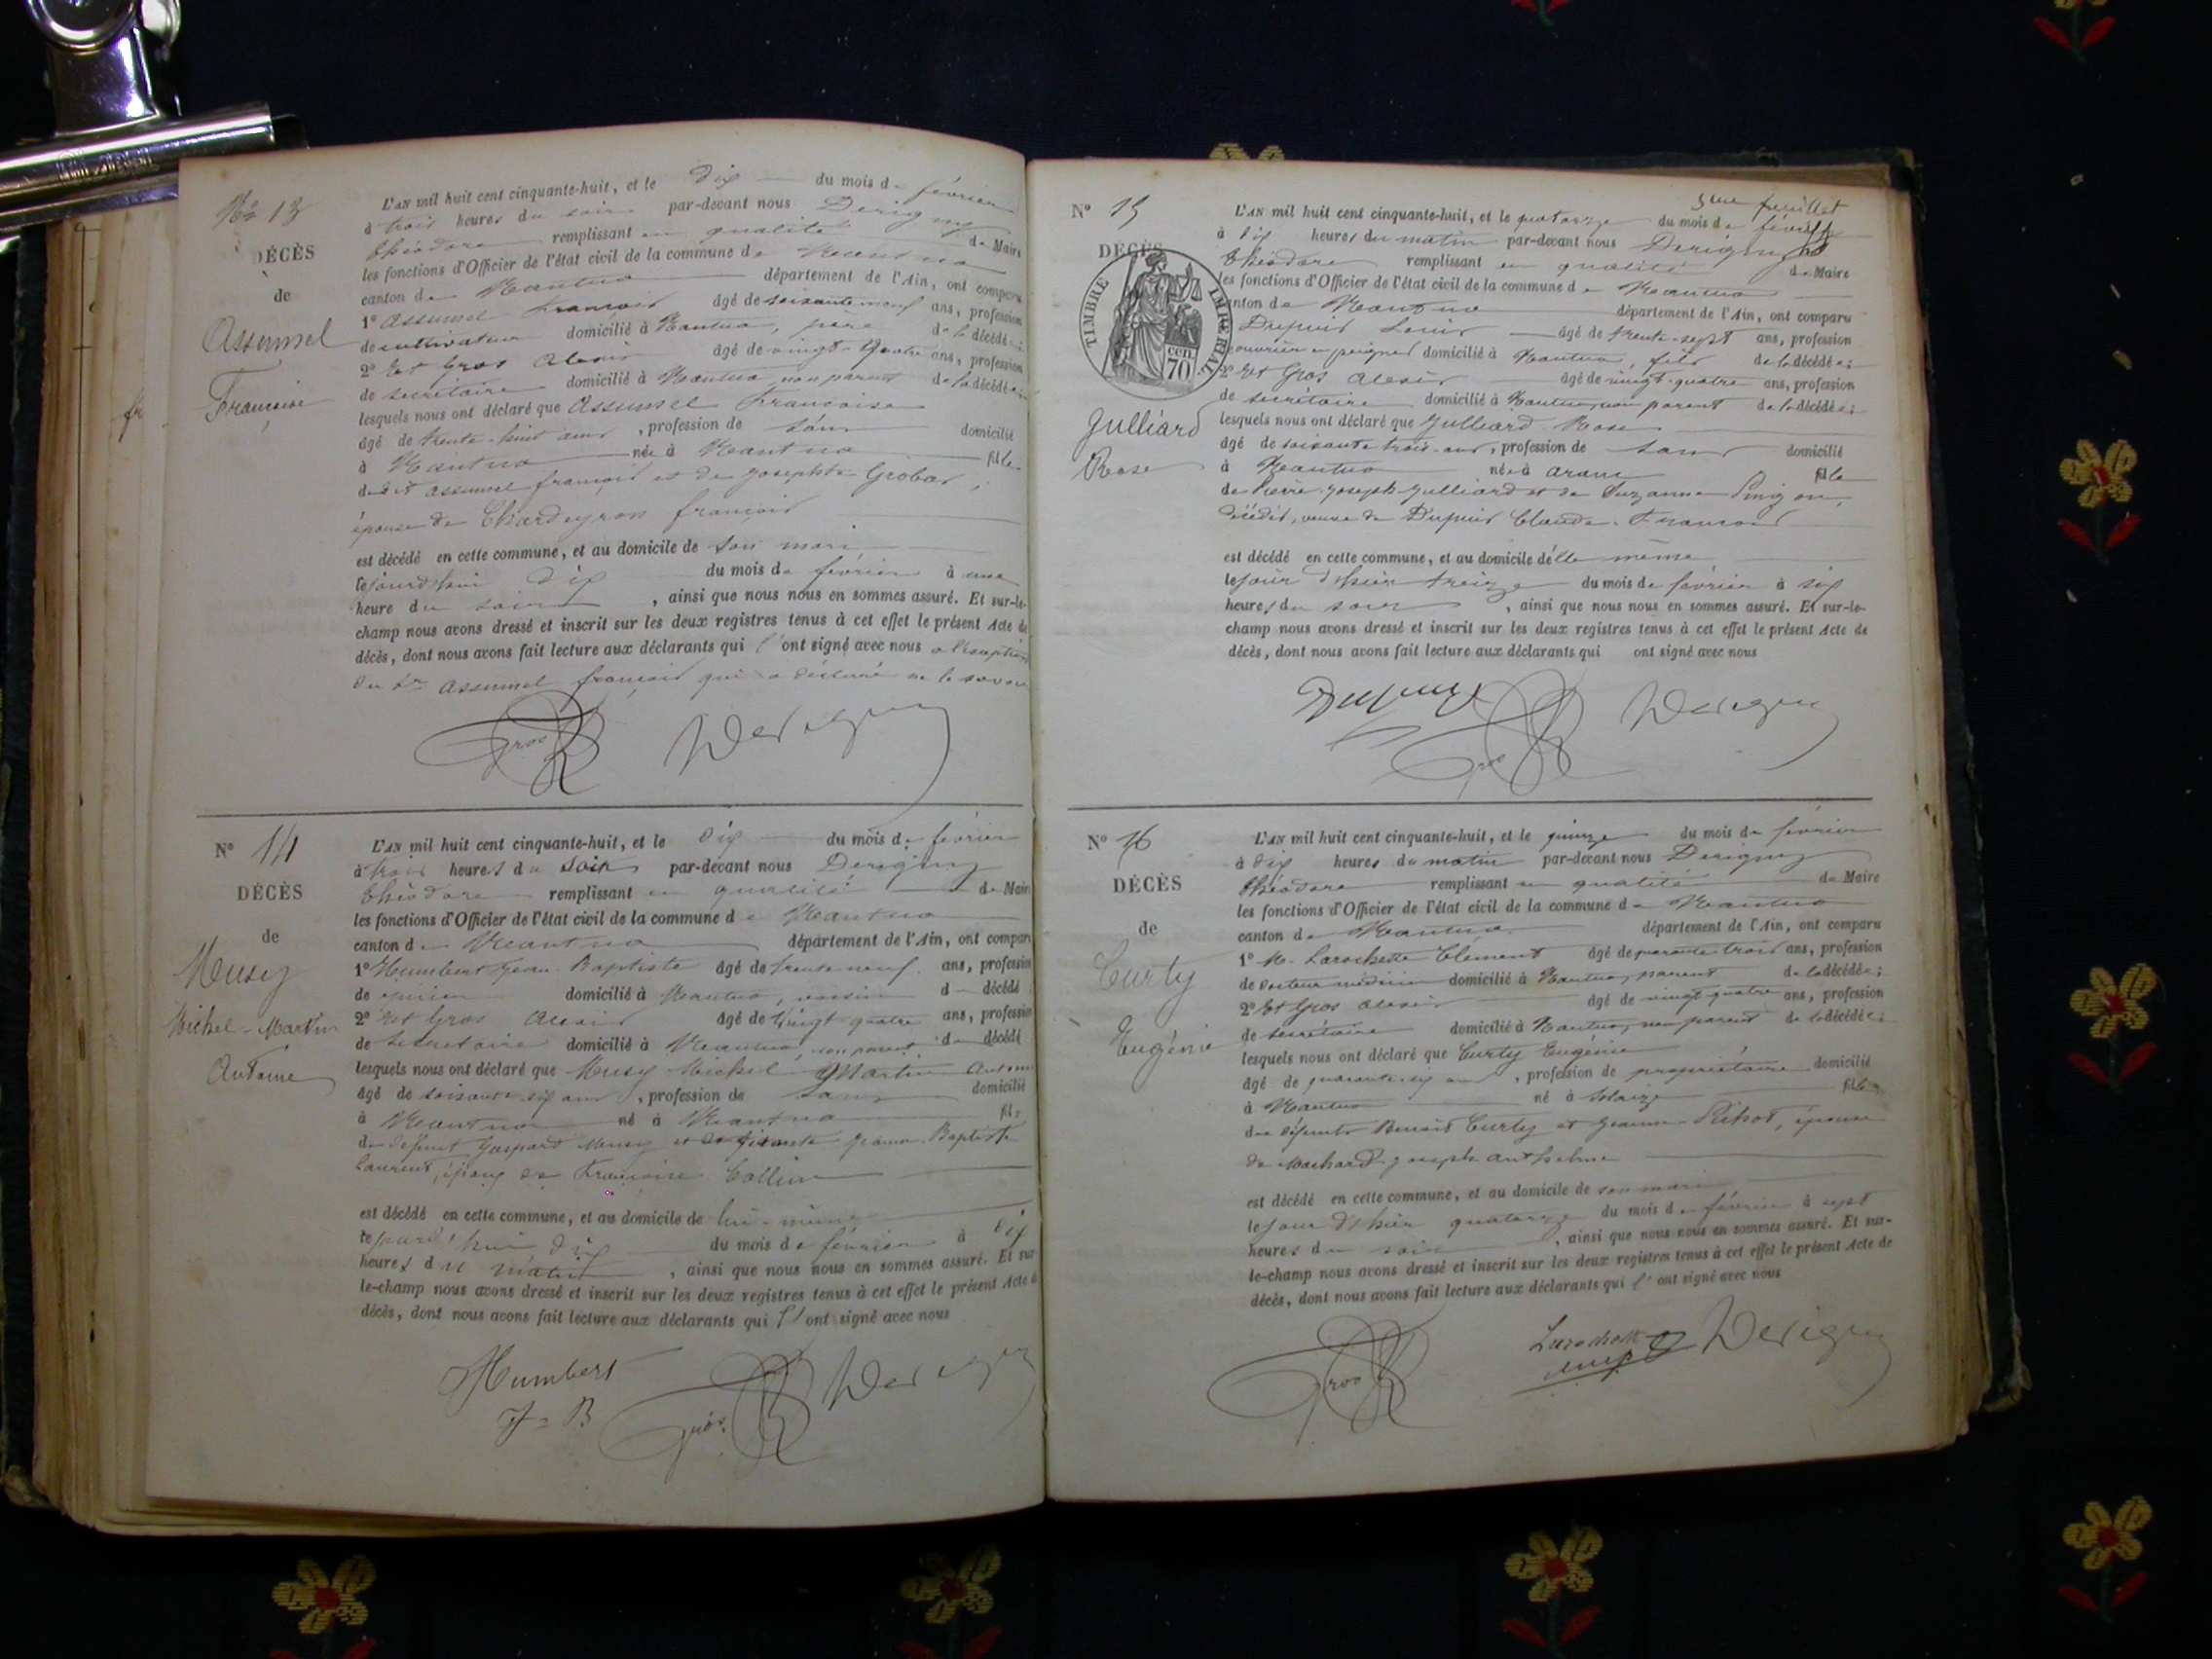 No 13
DÉCÈS
de
Assumel
Françoise
L'AN mil huit cent cinquante-huit, et le dix du mois de février
à trois heures du soir par-devant nous Derigny
Théodore remplissant en qualité de Maire
les fonctions d'Officier de l'état civil de la commune de Nantua
canton de Nantua département de l'Ain, ont comparu
1° Assumel François âgé de soixante neuf ans, profession
de cultivateur domicilié à Nantua, père de la décédée;
2° Et Gros Alexis âgé de vingt-quatre ans, profession
de secrétaire domicilié à Nantua, non parent de la décédée;
lesquels nous ont déclaré que Assumel Françoise
âgé de trente-huit ans, profession de sans domicilié
à Nantua née à Nantua fille
dudit Assumel François et de Josephte Grobas;
épouse de Chardeyron François
est décédé en cette commune, et au domicile de son mari
le jourd'hui dix du mois de février à une
heure du soir, ainsi que nous nous en sommes assuré. Et sur-le-
champ nous avons dressé et inscrit sur les deux registres tenus à cet effet le présent Acte de
décès, dont nous avons fait lecture aux déclarants qui l'ont signé avec nous a l'exception
du Sr Assumel François qui a déclaré ne le savoir
Gros Derigny
N° 14
DÉCÈS
de
Musy
Michel-Martin
Antoine
L'AN mil huit cent cinquante-huit, et le dix du mois de février
à trois heures du soir par-devant nous Derigny
Théodore remplissant en qualité de Maire
les fonctions d'Officier de l'état civil de la commune de Nantua
canton de Nantua département de l'Ain, ont comparu
1° Humbert Jean-Baptiste âgé de trente neuf ans, profession
de épicier domicilié à Nantua, voisin d décédé
2° Et Gros Alexis âgé de vingt-quatre ans, profession
de secrétaire domicilié à Nantua, non parent du décédé
lesquels nous ont déclaré que Musy Michel Martin Antoine
âgé de soixante-six ans, profession de sans domicilié
à Nantua né à Nantua fils
de défunt Gaspard Musy et de vivante Jeanne-Baptiste
Laurent, époux de Françoise Collin
est décédé en cette commune, et au domicile de lui-même
le jourd'hui dix du mois de février à dix
heures du matin, ainsi que nous nous en sommes assuré. Et sur-
le-champ nous avons dressé et inscrit sur les deux registres tenus à cet effet le présent Acte de
décès, dont nous avons fait lecture aux déclarants qui l'ont signé avec nous
Humbert
J=B Gros Derigny
5me feuillet
N° 15
DÉCÈS
TIMBRE IMPERIAL
70 cen
Julliard
Rose
L'AN mil huit cent cinquante-huit, et le quatorze du mois de février
à dix heures du matin par-devant nous Derigny
Théodore remplissant en qualité de Maire
les fonctions d'Officier de l'état civil de la commune de Nantua
canton de Nantua département de l'Ain, ont comparu
Dupuis Louis âgé de trente-sept ans, profession
ouvrier en peignes domicilié à Nantua, fils de la décédée;
2° Et Gros Alexis âgé de vingt-quatre ans, profession
de secrétaire domicilié à Nantua, non parent de la décédée;
lesquels nous ont déclaré que Julliard Rose
âgé de soixante trois ans, profession de sans domicilié
à Nantua née à Aranc fille
de Pierre-Joseph Julliard et de Suzanne Pingon,
décédés, veuve de Dupuis Claude-François
est décédé en cette commune, et au domicile d'elle même
le jour d'hier treize du mois de février à six
heures du soir, ainsi que nous nous en sommes assuré. Et sur-le-
champ nous avons dressé et inscrit sur les deux registres tenus à cet effet le présent Acte de
décès, dont nous avons fait lecture aux déclarants qui ont signé avec nous
Dupuys Gros Derigny
N° 16
DÉCÈS
de
Curty
Eugénie
L'AN mil huit cent cinquante-huit, et le quinze du mois de février
à dix heures du matin par-devant nous Derigny
Théodore remplissant en qualité de Maire
les fonctions d'Officier de l'état civil de la commune de Nantua
canton de Nantua département de l'Ain, ont comparu
1° M. Larochette Clément âgé de quarante trois ans, profession
de docteur médecin domicilié à Nantua, parent de la décédée;
2° Et Gros Alexis âgé de vingt quatre ans, profession
de secrétaire domicilié à Nantua, non parent de la décédée;
lesquels nous ont déclaré que Curty Eugénie
âgé de quarante-six ans, profession de propriétaire domicilié
à Nantua né à fille
des défunts Benoit Curty et Jeanne épouse
de Machard Joseph Anthelme
est décédé en cette commune, et au domicile de son mari
le jour d'hier quatorze du mois de février à sept
heures du soir, ainsi que nous nous en sommes assuré. Et sur-
le-champ nous avons dressé et inscrit sur les deux registres tenus à cet effet le présent Acte de
décès, dont nous avons fait lecture aux déclarants qui l'ont signé avec nous
Gros Larochette Derigny